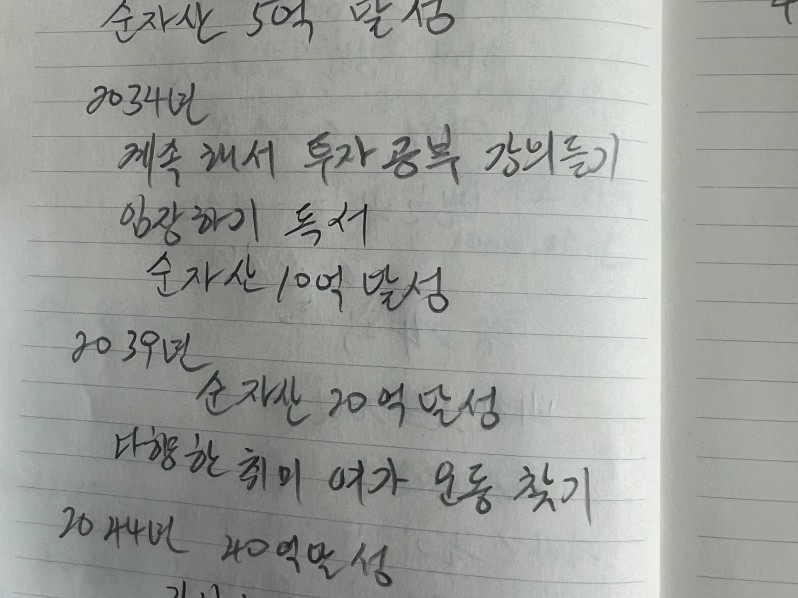 순자산 5억 달성
2034년
계속해서 투자공부 강의듣기
임장하기 독서
순자산 10억 달성
2039년
순자산 20억 달성
다행한 취미 여가 운동 찾기
2044년 40억달성